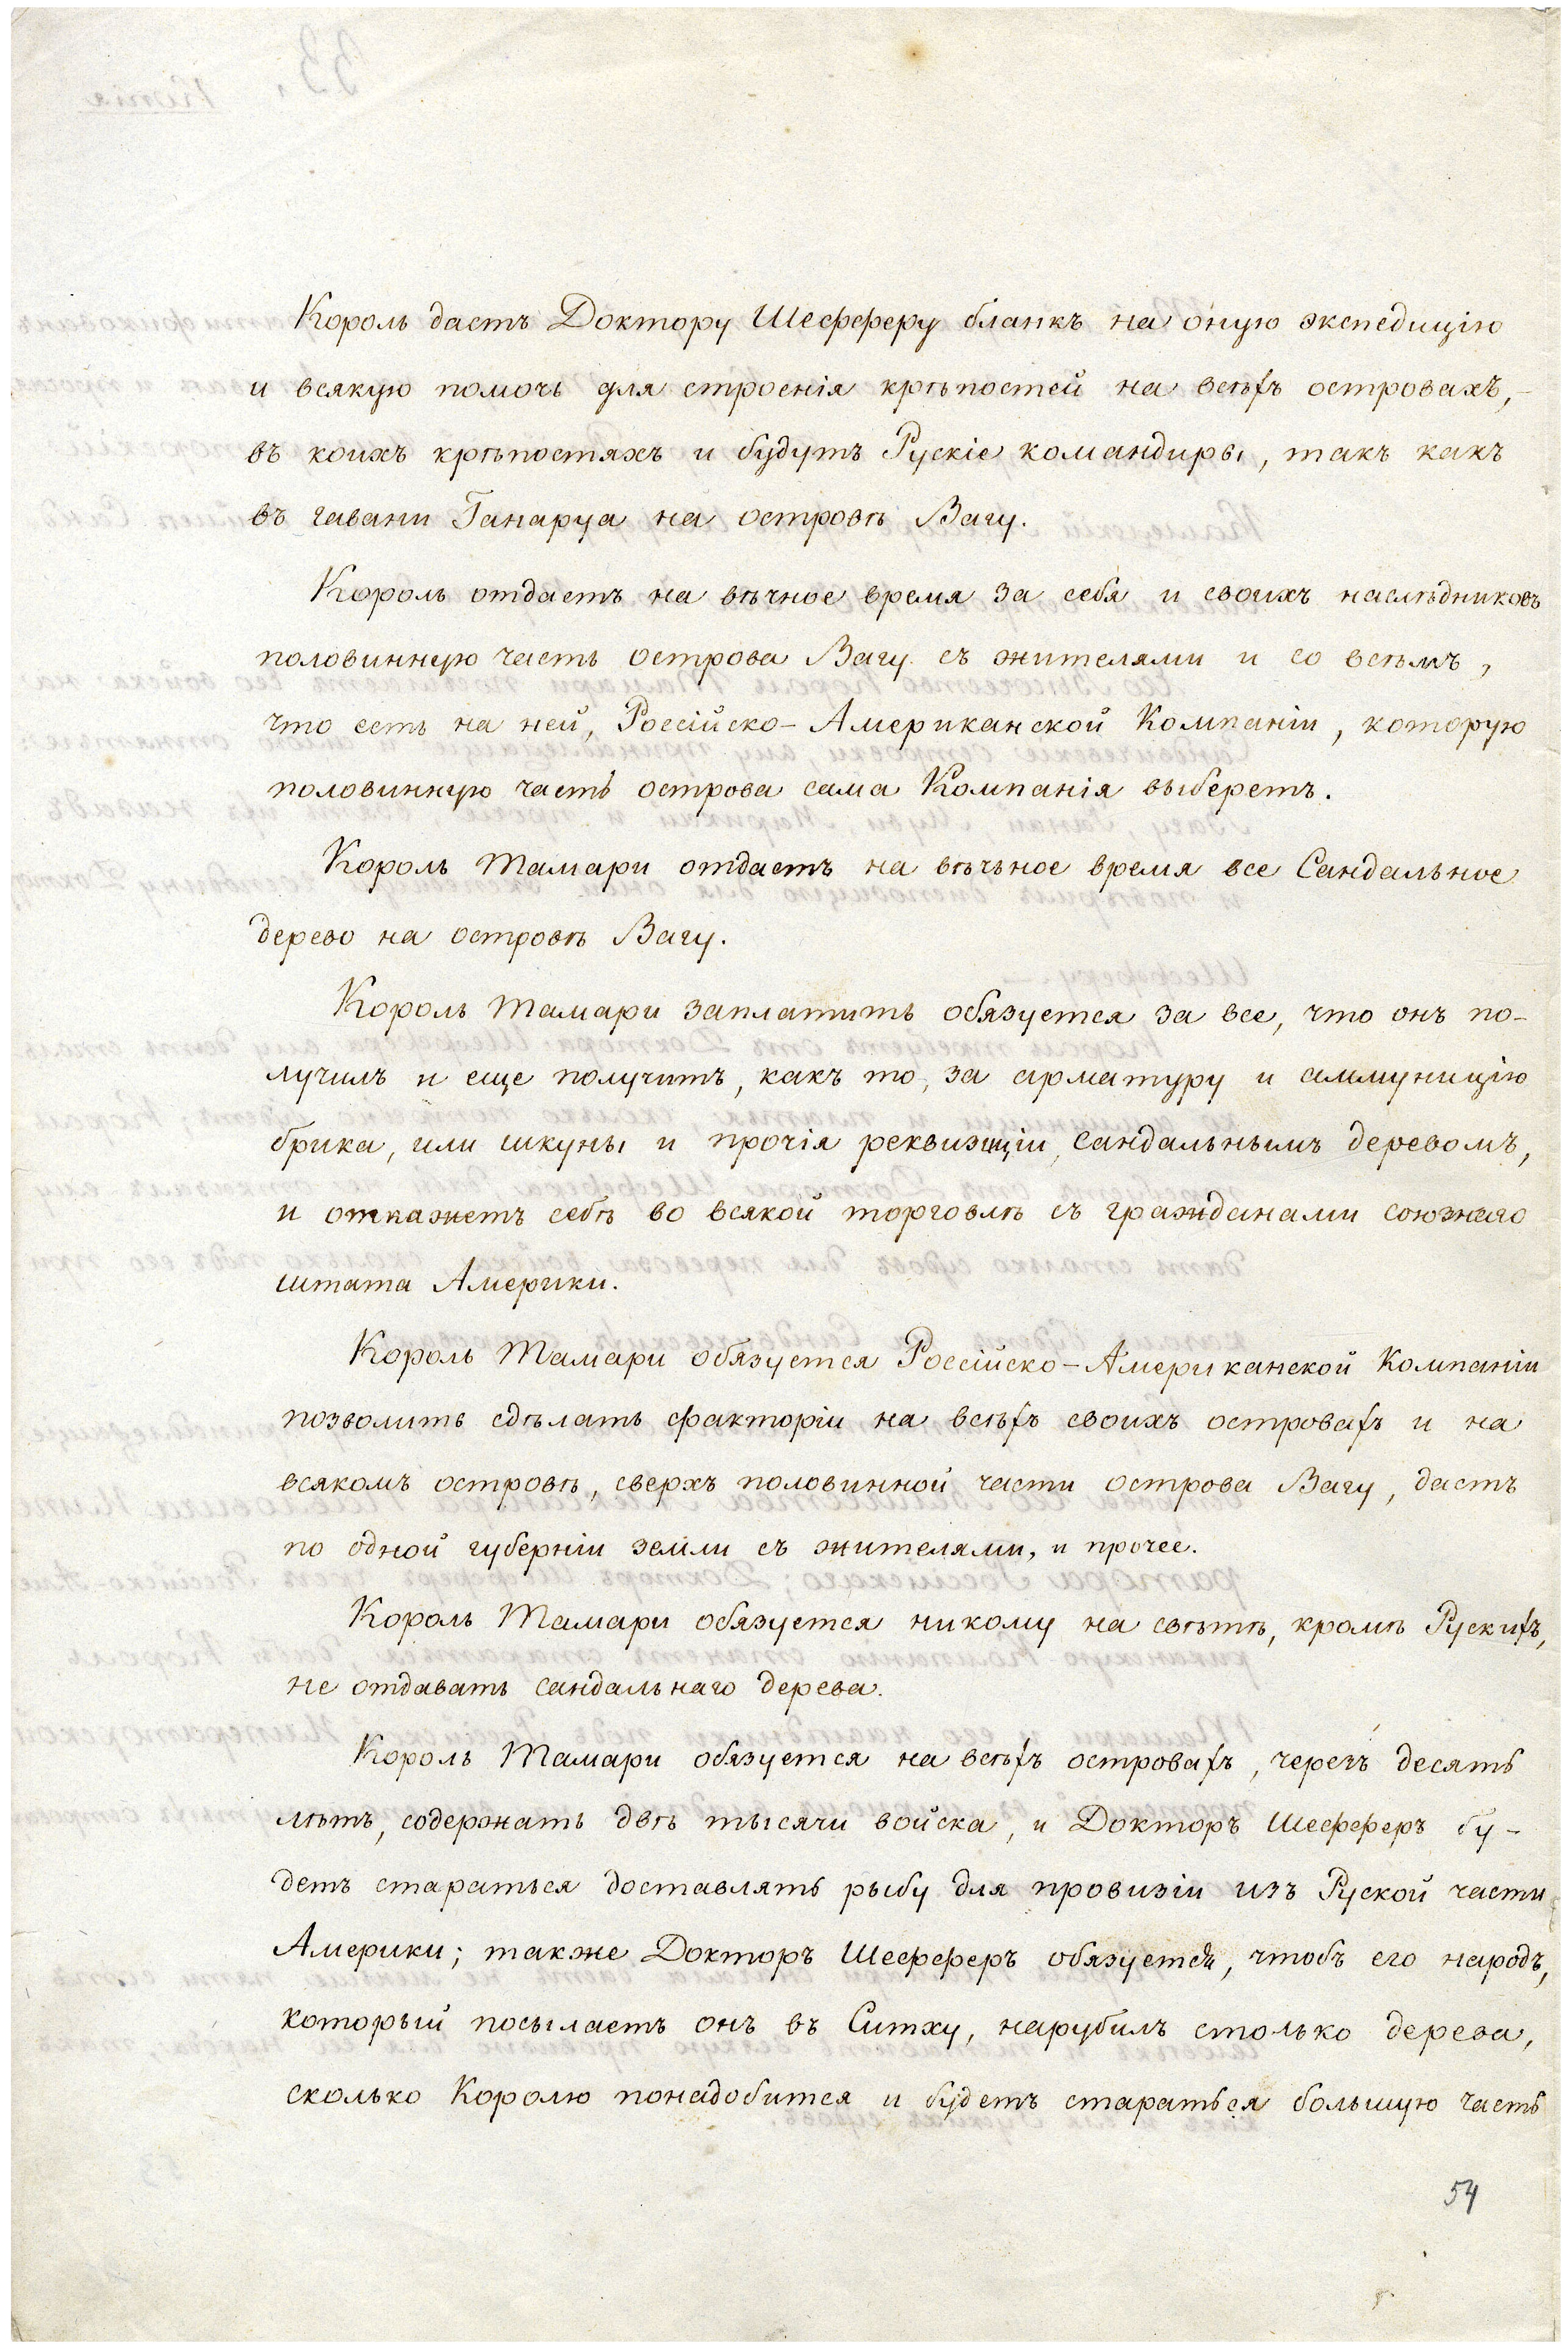 Король дастъ Доктору Шефферу бланкъ на оную экспедицію
и всякую помочь для строенія крѣпостей на всѣхъ островахъ,-
въ коихъ крѣпостяхъ и будутъ Рускіе командиры, такъ какъ
въ гавани Ганаруа на островѣ Вагу.
Король отдастъ на вѣчное время за себя и своихъ наслѣдниковъ
половинную часть острова Вагу съ жителями и со всѣмъ,
что есть на ней, Россійско-Американской Компаніи, которую
половинную часть острова сама Компанія выберетъ.
Король Тамари отдастъ на вѣчьное время все Сандальное
дерево на островѣ Вагу.
Король Тамари заплатить обязуется за все, что онъ по-
лучилъ и еще получитъ, какъ то, за арматуру и аммуницію
брика, или шкуны и прочія реквизиціи, сандальнымъ деревомъ,
и откажетъ себѣ во всякой торговлѣ съ гражданами союзнаго
штата Америки.
Король Тамари обязуется Россійско-Американской Компаніи
позволить сдѣлать факторіи на всѣхъ своихъ островахъ и на
всякомъ островѣ, сверхъ половинной части острова Вагу, дастъ
по одной губерніи земли съ жителями, и прочее.
Король Тамари обязуется никому на свѣтѣ, кромѣ Рускихъ,
не отдавать сандальнаго дерева.
Король Тамари обязуется на всѣхъ островахъ, черезъ десять
лѣтъ, содержать двѣ тысячи войска, и Докторъ Шефферъ бу-
детъ стараться доставлять рыбу для провизіи изъ Руской части
Америки; также Докторъ Шефферъ обязуется, чтобъ его народъ,
который посылаетъ онъ въ Ситху, нарубилъ столько дерева,
сколько Королю понадобится и будетъ стараться большую часть
54